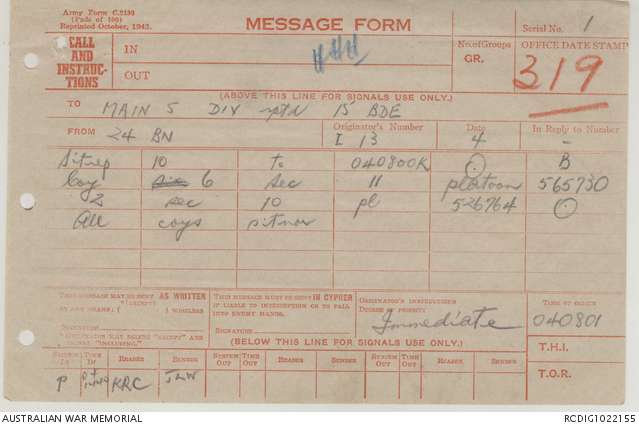 Army Form C.2139
(Pads of 100)
Reprinted October, 1942.
MESSAGE FORM
Serial No. 1
CALL AND INSTRUCTIONS
IN
OUT
No. of Groups
GR.
OFFICE DATE STAMP
319
(ABOVE THIS LINE FOR SIGNALS USE ONLY.)
TO MAIN 5 DIV rptd 15 BDE
FROM 24 BN
Originator's Number I 13
Date 4
In Reply to Number -
Sitrep 10 to 040800K . B
Coy 6 sec 11 platoon 565730
2 sec 10 pl 526764 .
All coys sitnor
THIS MESSAGE MAY BE SENT AS WRITTEN
BY ANY MEANS. ( ) WIRELESS
SIGNATURE
THIS MESSAGE MUST BE SENT IN CYPHER
IF LIABLE TO INTERCEPTION OR TO FALL
INTO ENEMY HANDS.
SIGNATURE
ORIGINATOR'S INSTRUCTIONS
DEGREE OF PRIORITY
Immediate
TIME OF ORIGIN
040801
(BELOW THIS LINE FOR SIGNALS USE ONLY.)
T.H.I.
T.O.R.
SYSTEM IN TIME IN READER SENDER SYSTEM OUT TIME OUT READER SENDER SYSTEM OUT TIME OUT READER SENDER
P KRC JLW
AUSTRALIAN WAR MEMORIAL
RCDIG1022155